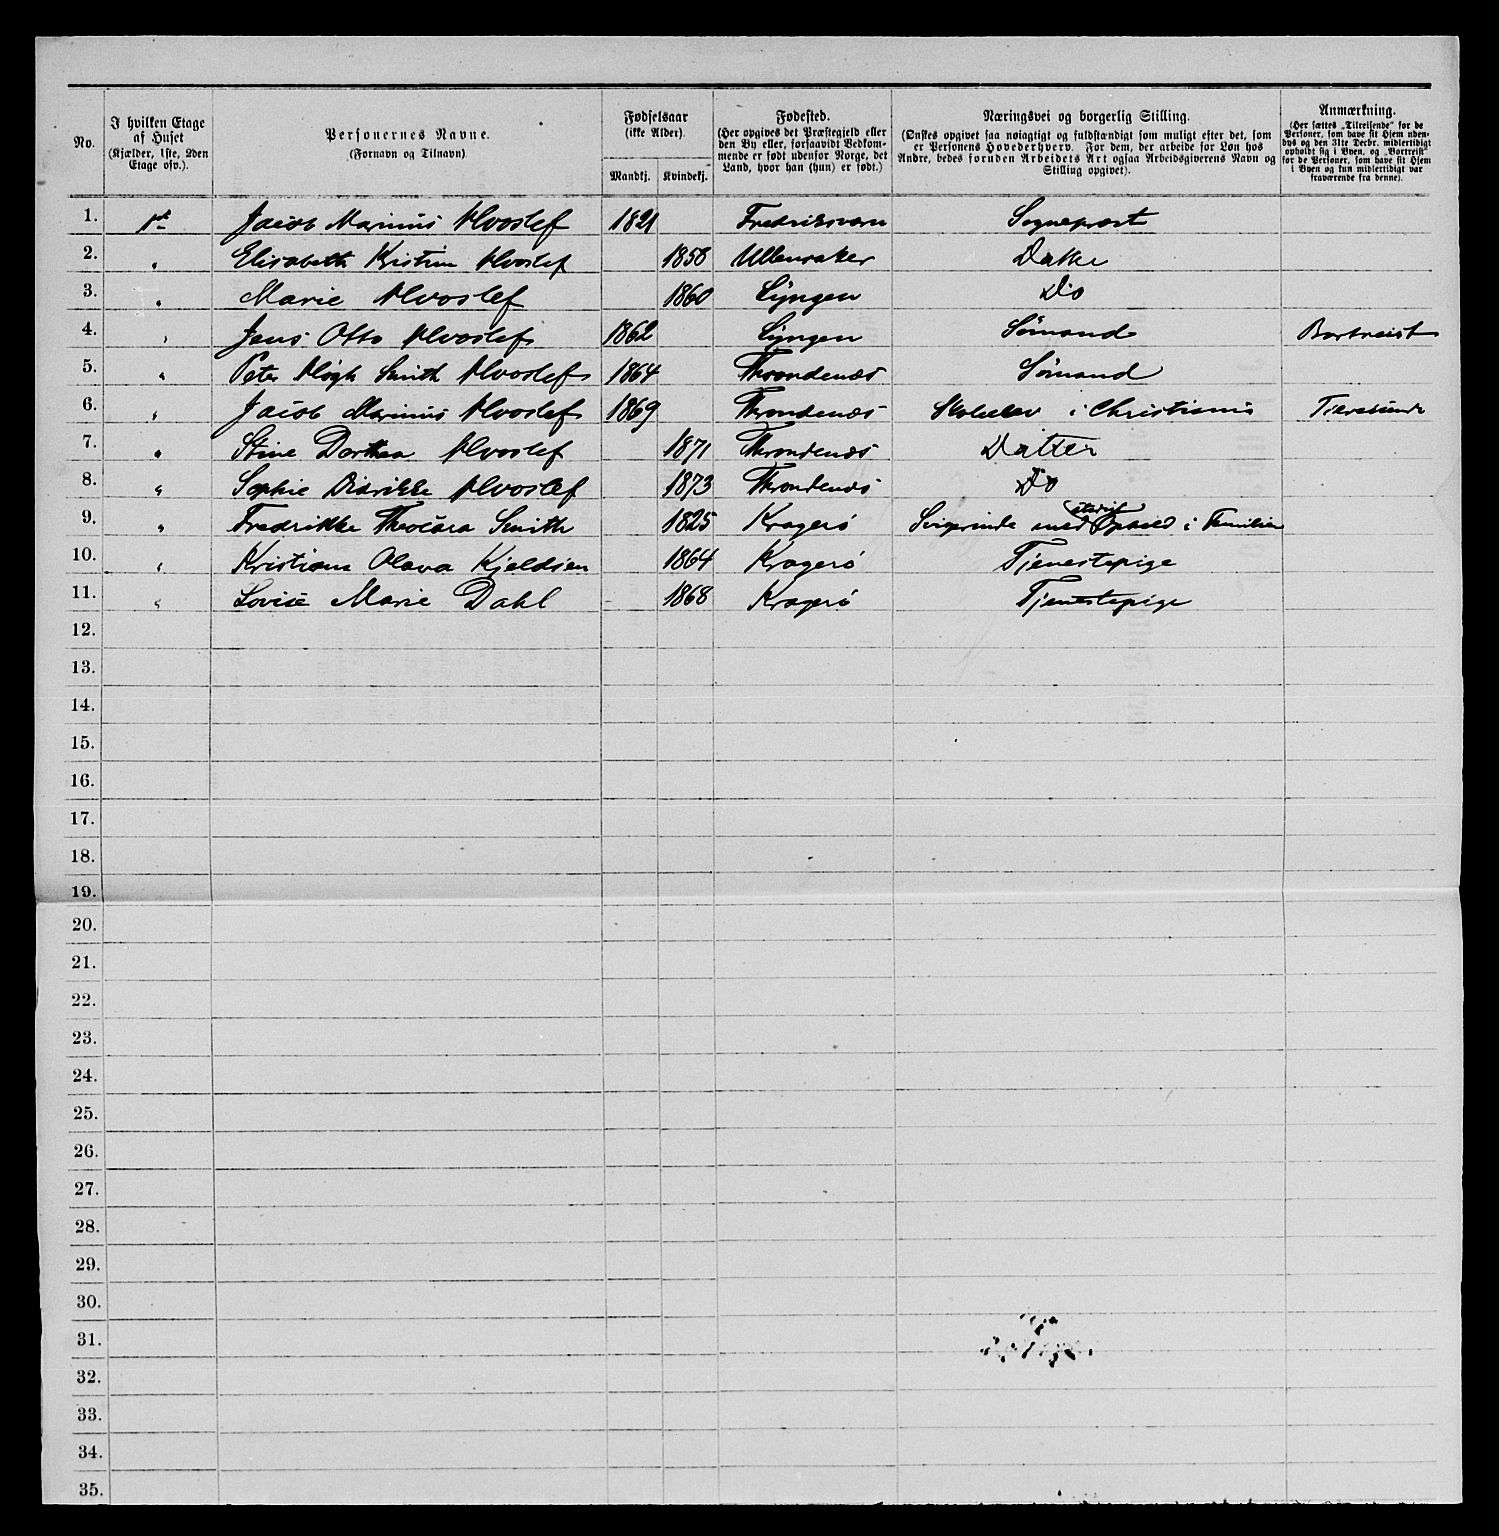 No.
I hvilken Etage af Huset (Kjælder, 1ste, 2den Etage osv.).
Personernes Navne. (Fornavn og Tilnavn)
Fødselsaar (ikke Alder).
Mandkj. Kvindekj.
Fødested. (Her opgives det Præstegjeld eller den By eller, forsaavidt Vedkommende er født udenfor Norge, det Land, hvor han (hun) er født.)
Næringsvei og borgerlig Stilling. (Ønskes opgivet saa nøiagtigt og fuldstændigt som muligt efter det, som er Personens Hovederhverv. For dem, der arbeide for Løn hos Andre, bedes foruden Arbeidets Art ogsaa Arbeidsgiverens Navn og Stilling opgivet).
Anmærkning. (Her sættes „Tilreisende“ for de Personer, som have sit Hjem udenbys og den 31te Decbr. midlertidigt opholdt sig i Byen, og „Bortreist“ for de Personer, som have sit Hjem i Byen og kun midlertidigt var fraværende fra denne).
1. 1st Jacob Marinus Hvoslef 1821 Fredriksværn Sogneprest
2. " Elisabeth Kristine Hvoslef 1858 Ullensaker Datter
3. " Marie Hvoslef 1860 Lyngen Do
4. " Jens Otto Hvoslef 1862 Lyngen Sömand Bortreist
5. " Peter Høgh Smith Hvoslef 1864 Throndenæs Sömand
6. " Jacob Marinus Hvoslef 1869 Throndenæs Skoleelev i Christiania Tilreisende
7. " Stine Dorthea Hvoslef 1871 Throndenæs Datter
8. " Sophie Didrikke Hvoslef 1873 Throndenæs Do
9. " Fredrikke Theodora Smith 1825 Kragerö Svigerinde med stadigt Ophold i Familien
10. " Kristiane Olava Kjeldsen 1864 Kragerö Tjenestepige
11. " Lovise Marie Dahl 1868 Kragerö Tjenestepige
12.
13.
14.
15.
16.
17.
18.
19.
20.
21.
22.
23.
24.
25.
26.
27.
28.
29.
30.
31.
32.
33.
34.
35.